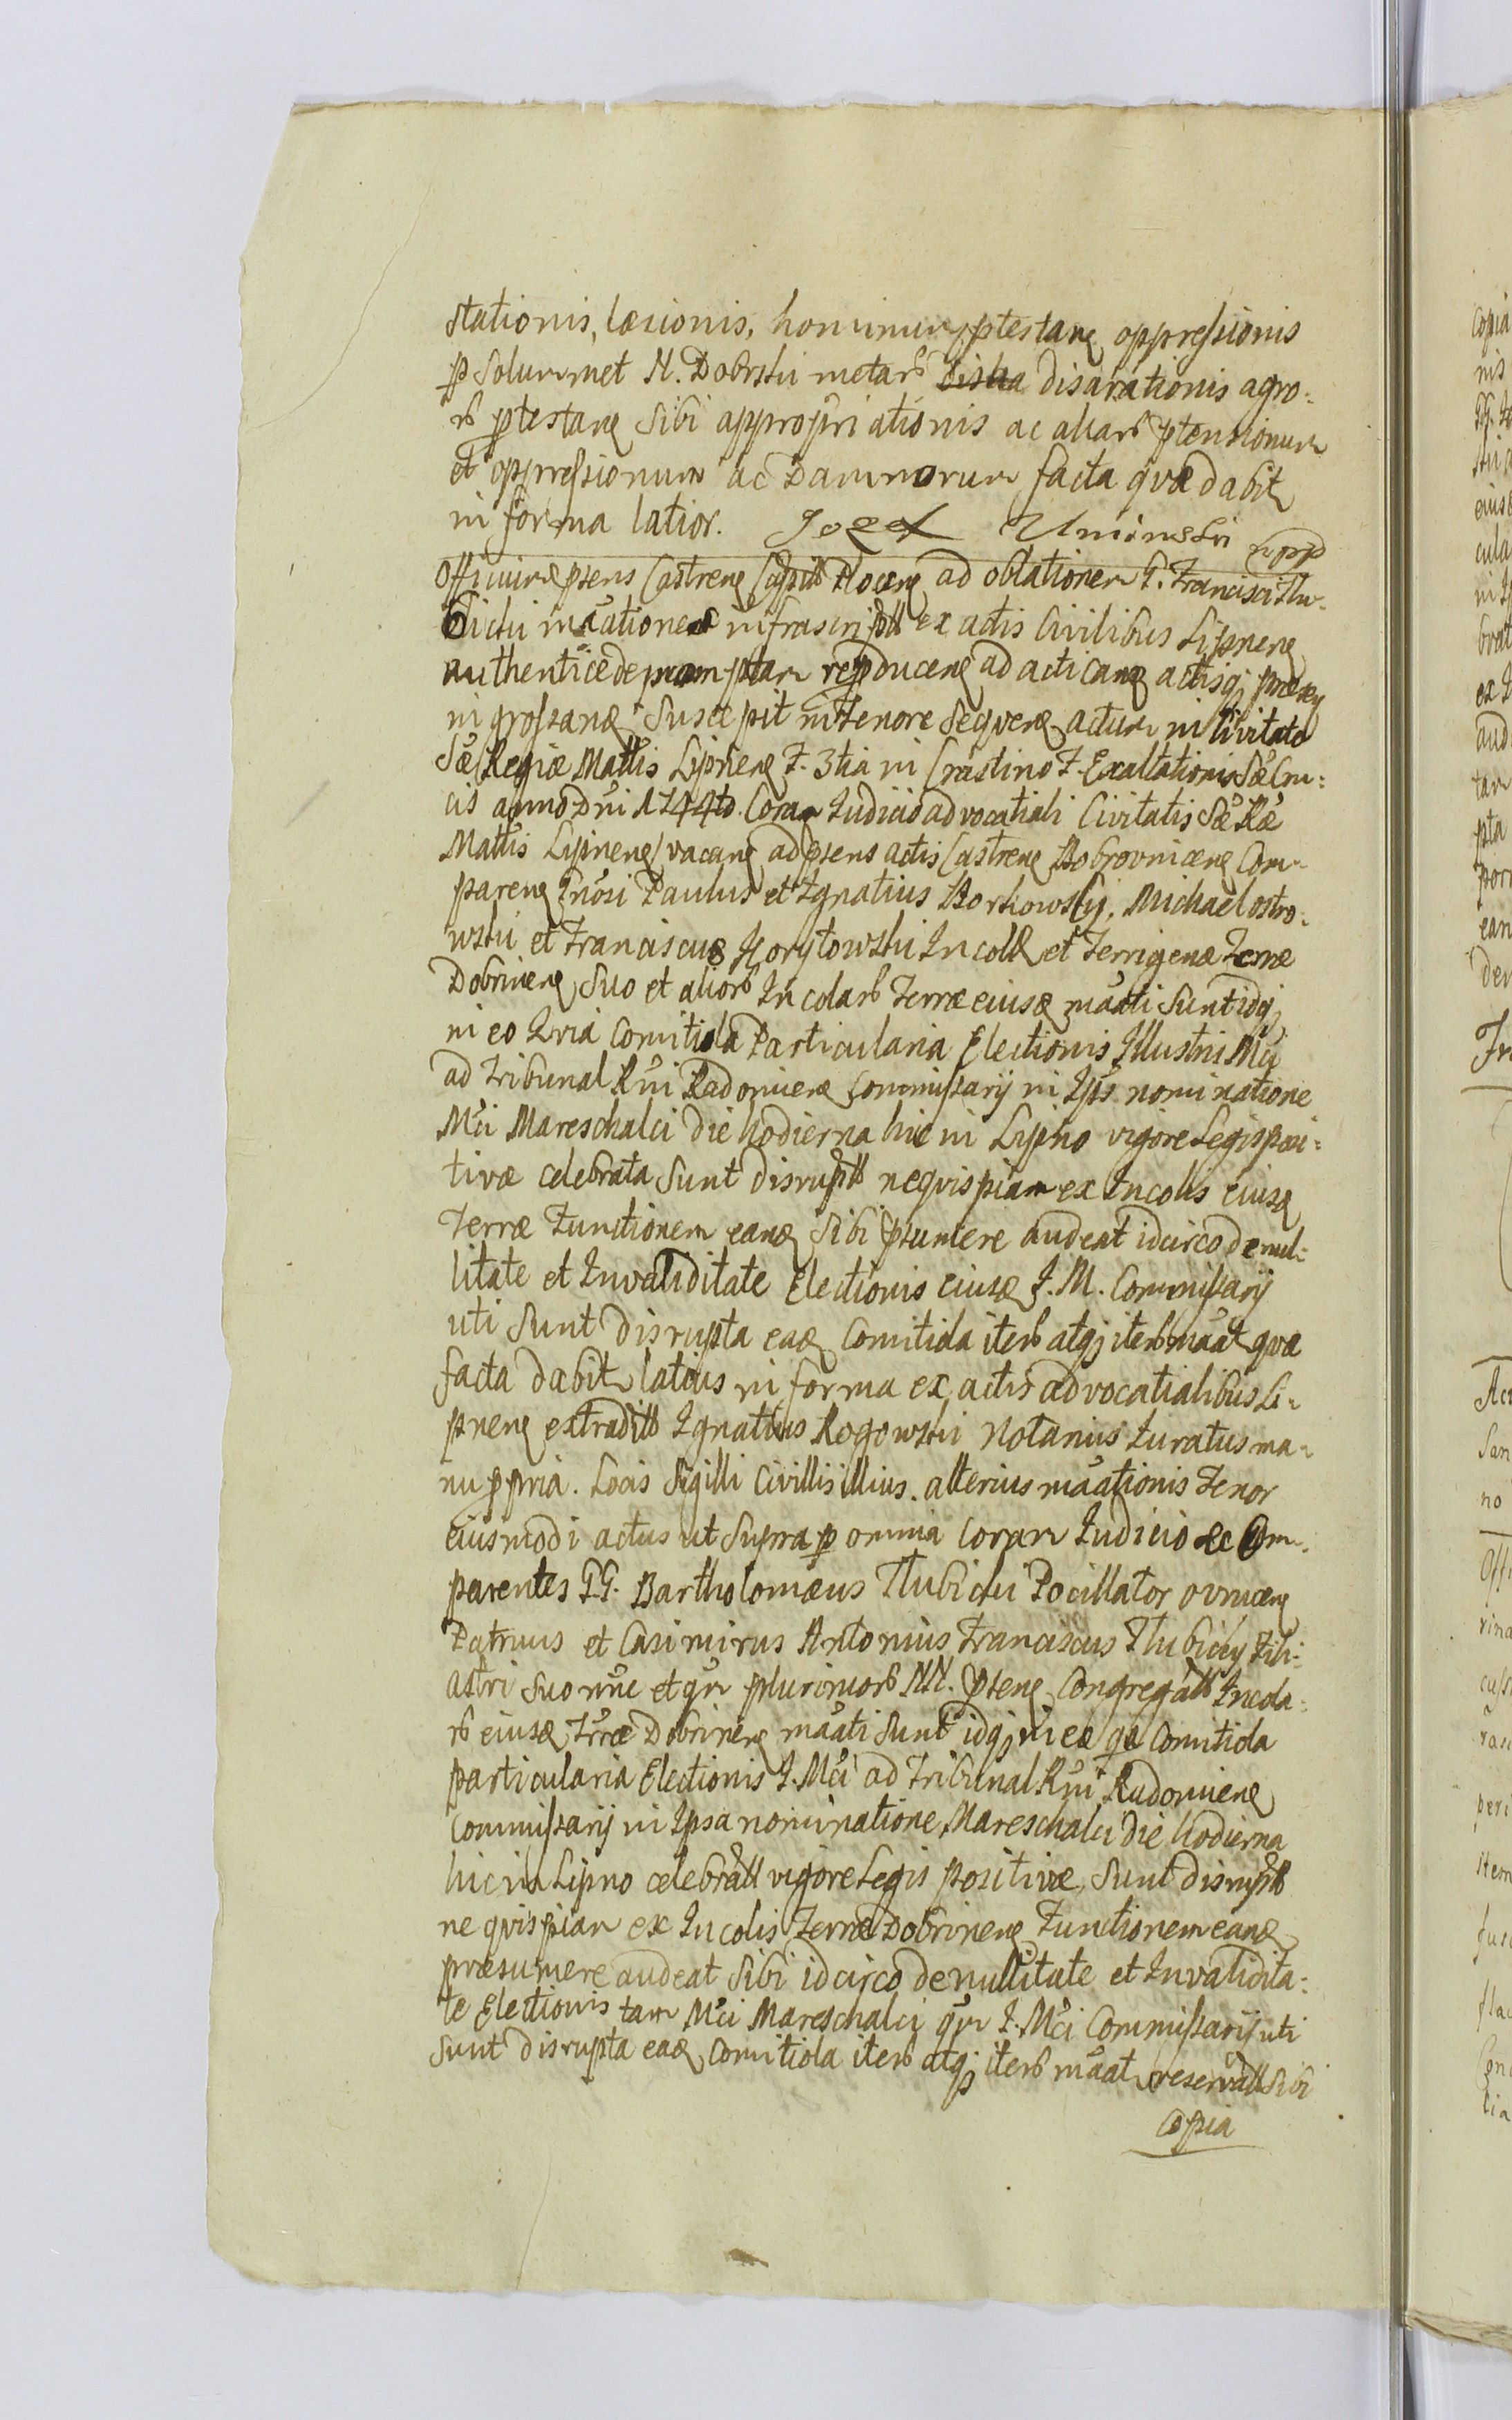 stationis, læsionis, hominum ptestan oppressionis
p Solummet N. Dobrski metar disarationis agro-
r ptestan Sibi appropriationis ac aliar ptensionum
et oppressionum ac Damnorum facta qvæ dabit
in forma latior. Jozef Uminski mpp
Officium psens Castren Capit ad oblationem G. Francisci Tłu-
bicki infrascript ex actis Civilibus Lipnen
authentice depromptam repducen ad actican actisq
ingrossan Suscepit in Tenore Seqven actum in Civitate
Sæ Regiæ Mattis Lipnen F. 3tia in Crastino F. Exaltationis Sæ Cru-
cis anno Dni 1744to. Coram Judicio advocatiali Civitatis Sæ Ræ
Mattis Lipnen vacan ad psens actis Castren Bobrovnicen Com-
paren Gnosi Paulus et Ignatius Borkowscy, Michael Ostro-
wski et Franciscus Korytowski Incolæ et Terrigenæ Terræ
Dobrinen Suo et alior Incolar Terræ eiusd maati Sunt idq
in eo Qvia Comitiola Particularia Electionis Illustris Mci
ad Tribunal Rni Radomien Commissarij in Ipsa nominatione
Mci Mareschalci die hodierna hic in Lipno vigore Legis posi-
tivæ celebrata Sunt disrupta neqvispiam ex Incolis eiusd
Terræ Functionem eand Sibi psumere audeat idcirco de nul-
litate et Invaliditate Electionis eiusd I. M. Commissarij
uti Sunt disrupta ead Comitiola iter atq iter maat qvæ
facta dabit latius in forma ex actis advocatialibus Li-
pnen extradit Ignatius Rogowski Notarius Juratus ma-
nu ppria. Locis Sigilli Civillis illius. alterius maationis Tenor
eiusmodi actus ut Supra p omnia Coram Judicio ac Com-
parentes GG. Bartholomæus Tłubicki Pocillator Ovrucen
Patruus et Casimirus Antonius Franciscus Tłubiccy Fili-
astri Suo nne et qm plurimor NN. psen Congregat Incola-
r eiusd Trræ Dobrinen maati Sunt idq in eo qa Comitiola
particularia Electionis I. Mci ad Tribunal Rni Radomien
Commissarij in Ipsa nominatione Mareschalci die hodierna
hic in Lipno celebrat vigore Legis positivæ, Sunt disrupt
ne qvispiam ex Incolis Terræ Dobrinen Functionem eand
præsumere audeat Sibi idcirco de nullitate et Invalidita-
te Electionis tam Mci Mareschalci qm I. Mci Commissarij uti
Sunt disrupta ead Comitiola iter atq iter maat reservat Sibi
Copia